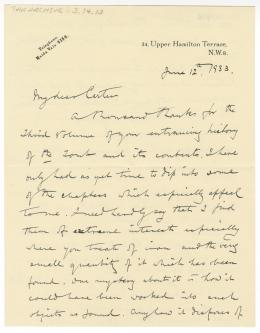 TAA ARCHIVE - 2.14.12
Telephone,
Maida Vale 2284.
34, Upper Hamilton Terrace,
N.W.8.
June 12th, 1933.
My dear Carter
A thousand thanks for the
Third Volume of your entrancing history
of the Tomb and its contents. I have
only had as yet time to dip into some
of the chapters which especially appeal
to me. I need hardly say that I find
them of extreme interest especially
where you treat of iron and the very
small quantity of it which has been
found. One mystery about it is how it
could have been worked into such
objects as found. Anyhow it disposes of